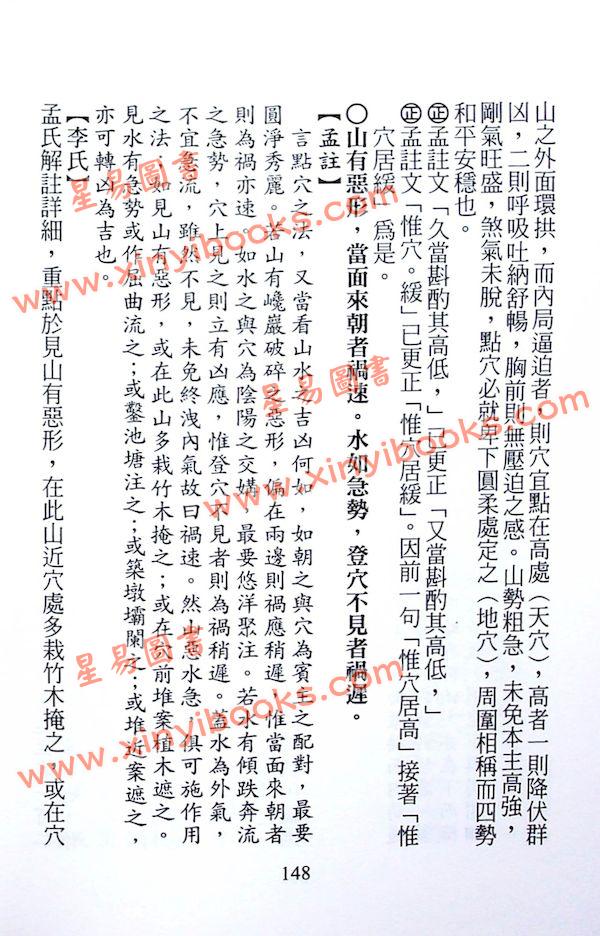 山之外面環拱，而內局逼迫者，則穴宜點在高處（天穴），高者一則降伏群
凶，二則呼吸吐納舒暢，胸前則無壓迫之感。山勢粗急，未免本主高強，
剛氣旺盛，煞氣未脫，點穴必就卑下圓柔處定之（地穴），周圍相稱而四勢
和平安穩也。
㊣孟註文「久當斟酌其高低，」已更正「又當斟酌其高低，」
㊣孟註文「惟穴。緩」已更正「惟穴居緩」。因前一句「惟穴居高」接著「惟
穴居緩」為是。
○山有惡形，當面來朝者禍速。水如急勢，登穴不見者禍遲。
【孟註】
言點穴之法，又當看山水之吉凶何如，如朝之與穴為賓主之配對，最要
圓淨秀麗。若山有巉巖破碎之惡形，偏在兩邊則禍應稍遲，惟當面來朝者
則為禍亦速。如水之與穴為陰陽之交媾，最要悠洋聚注。若水有傾跌奔流
之急勢，穴上見之則立有凶應，惟登穴不見者則為禍稍遲。蓋水為外氣，
不宜急流，雖然不見，未免終洩內氣故曰禍速。然山惡水急，俱可施作用
之法；如見山有惡形，或在此山多栽竹木掩之；或在穴前堆案植木遮之。
見水有急勢或作屈曲流之；或鑿池塘注之；或築墩壩闌之；或堆近案遮之，
亦可轉凶為吉也。
【李氏】
孟氏解註詳細，重點於見山有惡形，在此山近穴處多栽竹木掩之，或在穴
148
星易圖書
www.xinyibooks.com
星易圖書
www.xinyibooks.com
星易圖書
www.xinyibooks.com